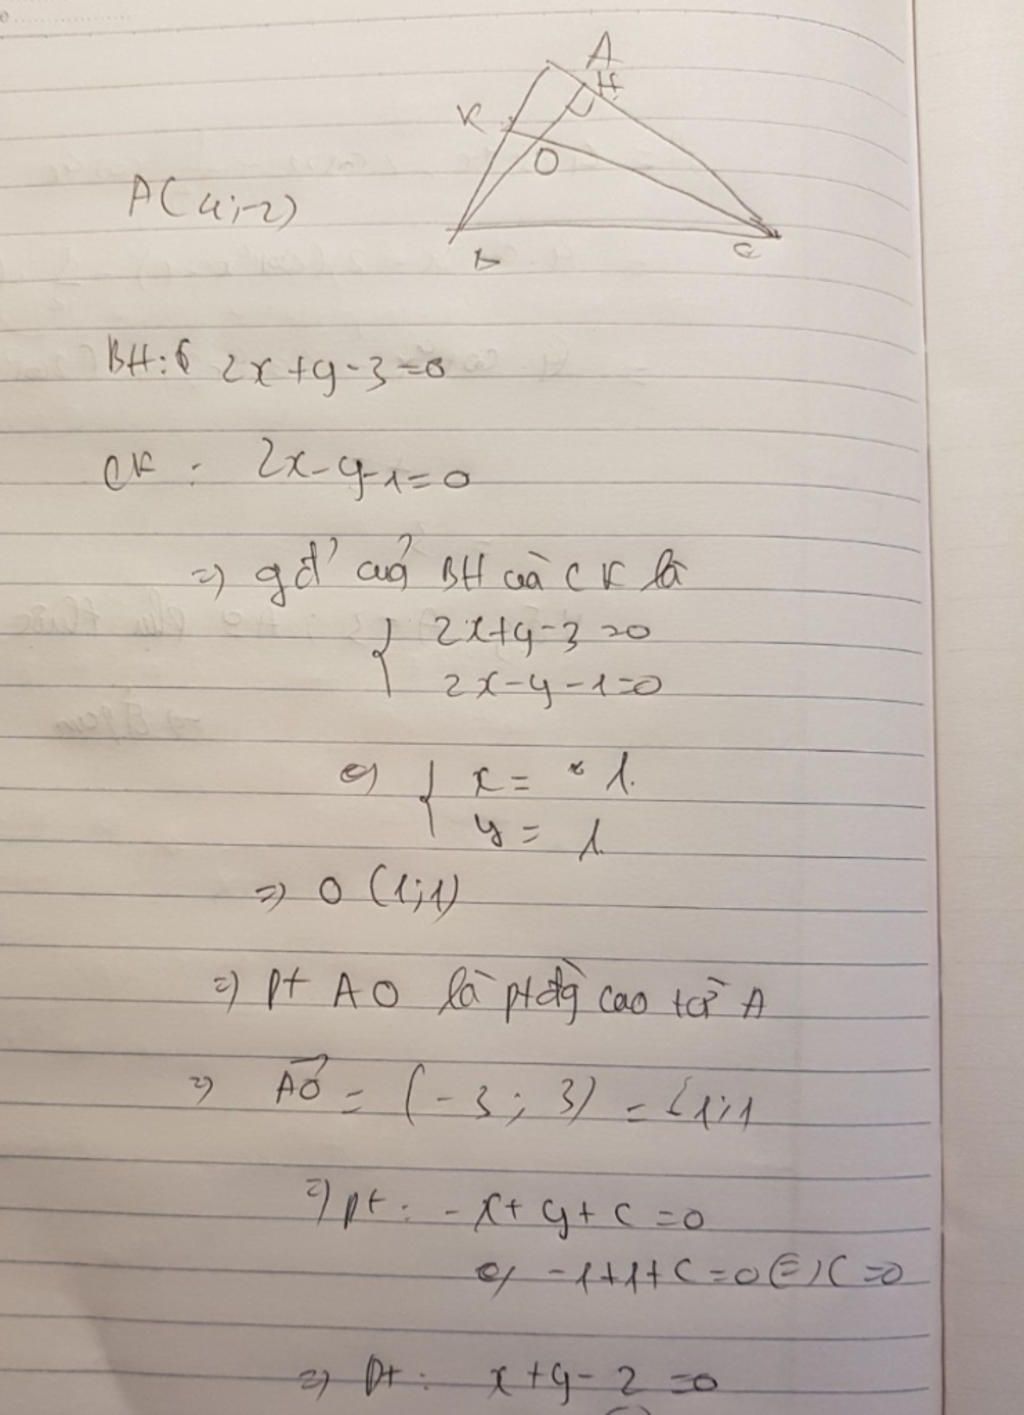 A
H
K
O
A(4;-2)
B
C
BH: 2x+y-3=0
CK: 2x-y-1=0
=) gđ' của BH và CK là
{ 2x+y-3=0
2x-y-1=0
{ x = 1.
y = 1.
=) O (1;1)
=) pt AO là ptđg cao từ A
=) AO = (-3; 3) = (1;1
=) pt: -x+y+c=0
-1+1+c=0 (=) c=0
=) pt: x+y-2=0